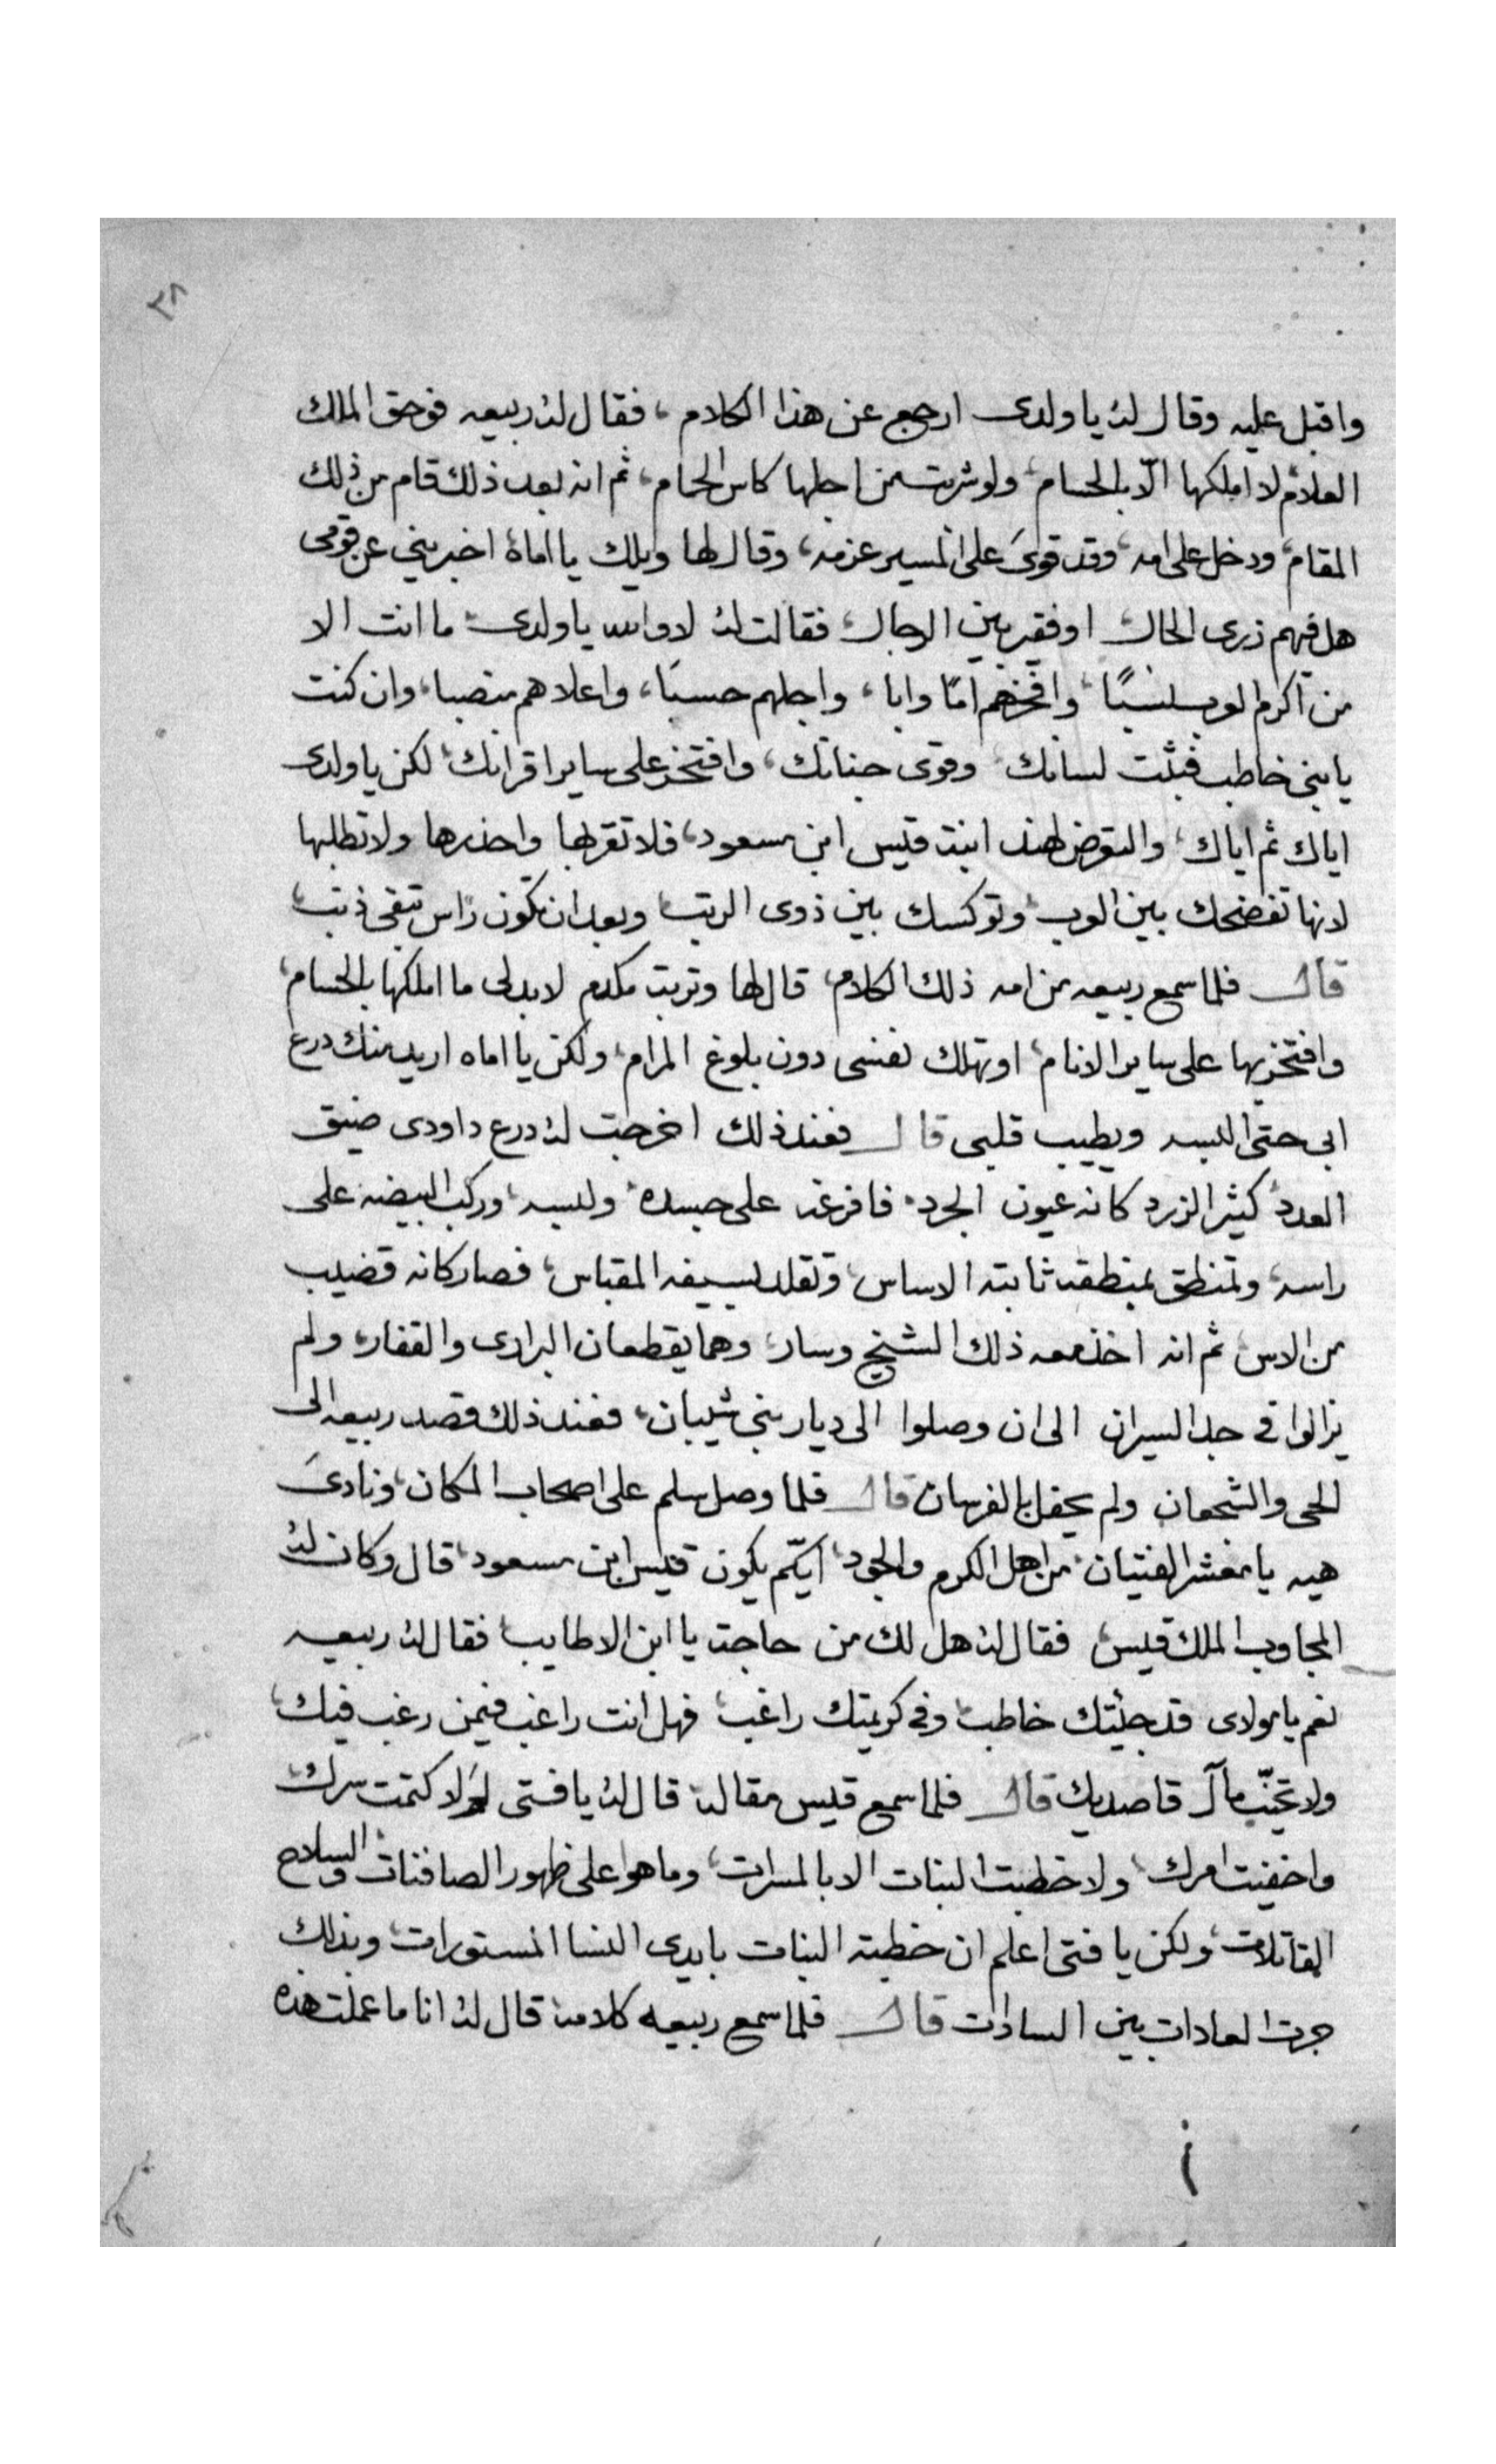 ٣٨
واقبل عليه وقال له يا ولدى ارجع عن هذا الكلام، فقال له ربيعه فوحق الملك
العلام لا املكها الّا بالحسام، ولو شربت من اجلها كاس الحمام، ثم انه بعد ذلك قام من ذلك
المقام، ودخل على امه، وقد قوىَ على المسير عزمه، وقال لها ويلك يا اماهُ اخبريني عن قومى
هل فيهم زرى الحال او فقير بين الرجال، فقالت له لا والله يا ولدى ما انت الا
من اكرم العرب نسبًا، وافخرهم امًا وابا، واجلهم حسبًا، واعلاهم منصبا، وان كنت
يا بنى خاطب فثبّت لسانك، وقوى جنانك، وافتخر على ساير اقرانك، لكن يا ولدى
اياك ثم اياك، والتعرض لهند ابنة قيس ابن مسعود، فلا تقربها واحذرها ولا تطلبها
لانها تفضحك بين العرب، وتوكسك بين ذوى الرتب، وبعد ان تكون راس تبقى ذنب،
قال فلما سمع ربيعه من امه ذلك الكلام، قال لها وتربت مكدم لا بد لى ما املكها بالحسام،
وافتخر بها على ساير الانام، او تهلك نفسى دون بلوغ المرام، ولكن يا اماه اريد منك درع
ابى حتى البسه ويطيب قلبى قال فعند ذلك اخرجت له درع داودى ضيق
العدد كثير الزرد كانه عيون الجرد، فافرغه على جسده، ولبسه، وركب البيضه على
راسه، وتمنطق بمنطقه ثابته الاساس، وتقلد بسيفه المقباس، فصار كانه قضيب
من الاس، ثم انه اخذ معه ذلك الشيخ وسار، وهما يقطعان البرارى والقفار، ولم
يزالوا فى جد السيران الى ان وصلوا الى ديار بنى شيبان، فعند ذلك قصد ربيعه الى
الحى والشجعان ولم يحفل بالفرسان قال فلما وصل سلم على اصحاب المكان، ونادىَ
هيه يا معشر الفتيان، من اهل الكرم والجود، ايّكم يكون قيس ابن مسعود، قال وكان له
المجاوب الملك قيس، فقال له هل لك من حاجة يا ابن الاطايب، فقال له ربيعه
نعم يا مولاى قد جئتك خاطب، وفى كريمتك راغب، فهل انت راغب فيمن رغب فيك،
ولا تخيّب مآل قاصديك قال فلما سمع قيس مقاله قال له يا فتى لَو لا كتمت سرك،
واخفيت امرك، ولا خطبت البنات الا بالمسرات، وما هوا على ظهور الصافنات والسلاح
القاتلات، ولكن يا فتى اعلم ان خطبة البنات بايدى النسا المستورات، وبذلك
جرت العادات بين السادات قال فلما سمع ربيعه كلامه قال له انا ما عملت هذه